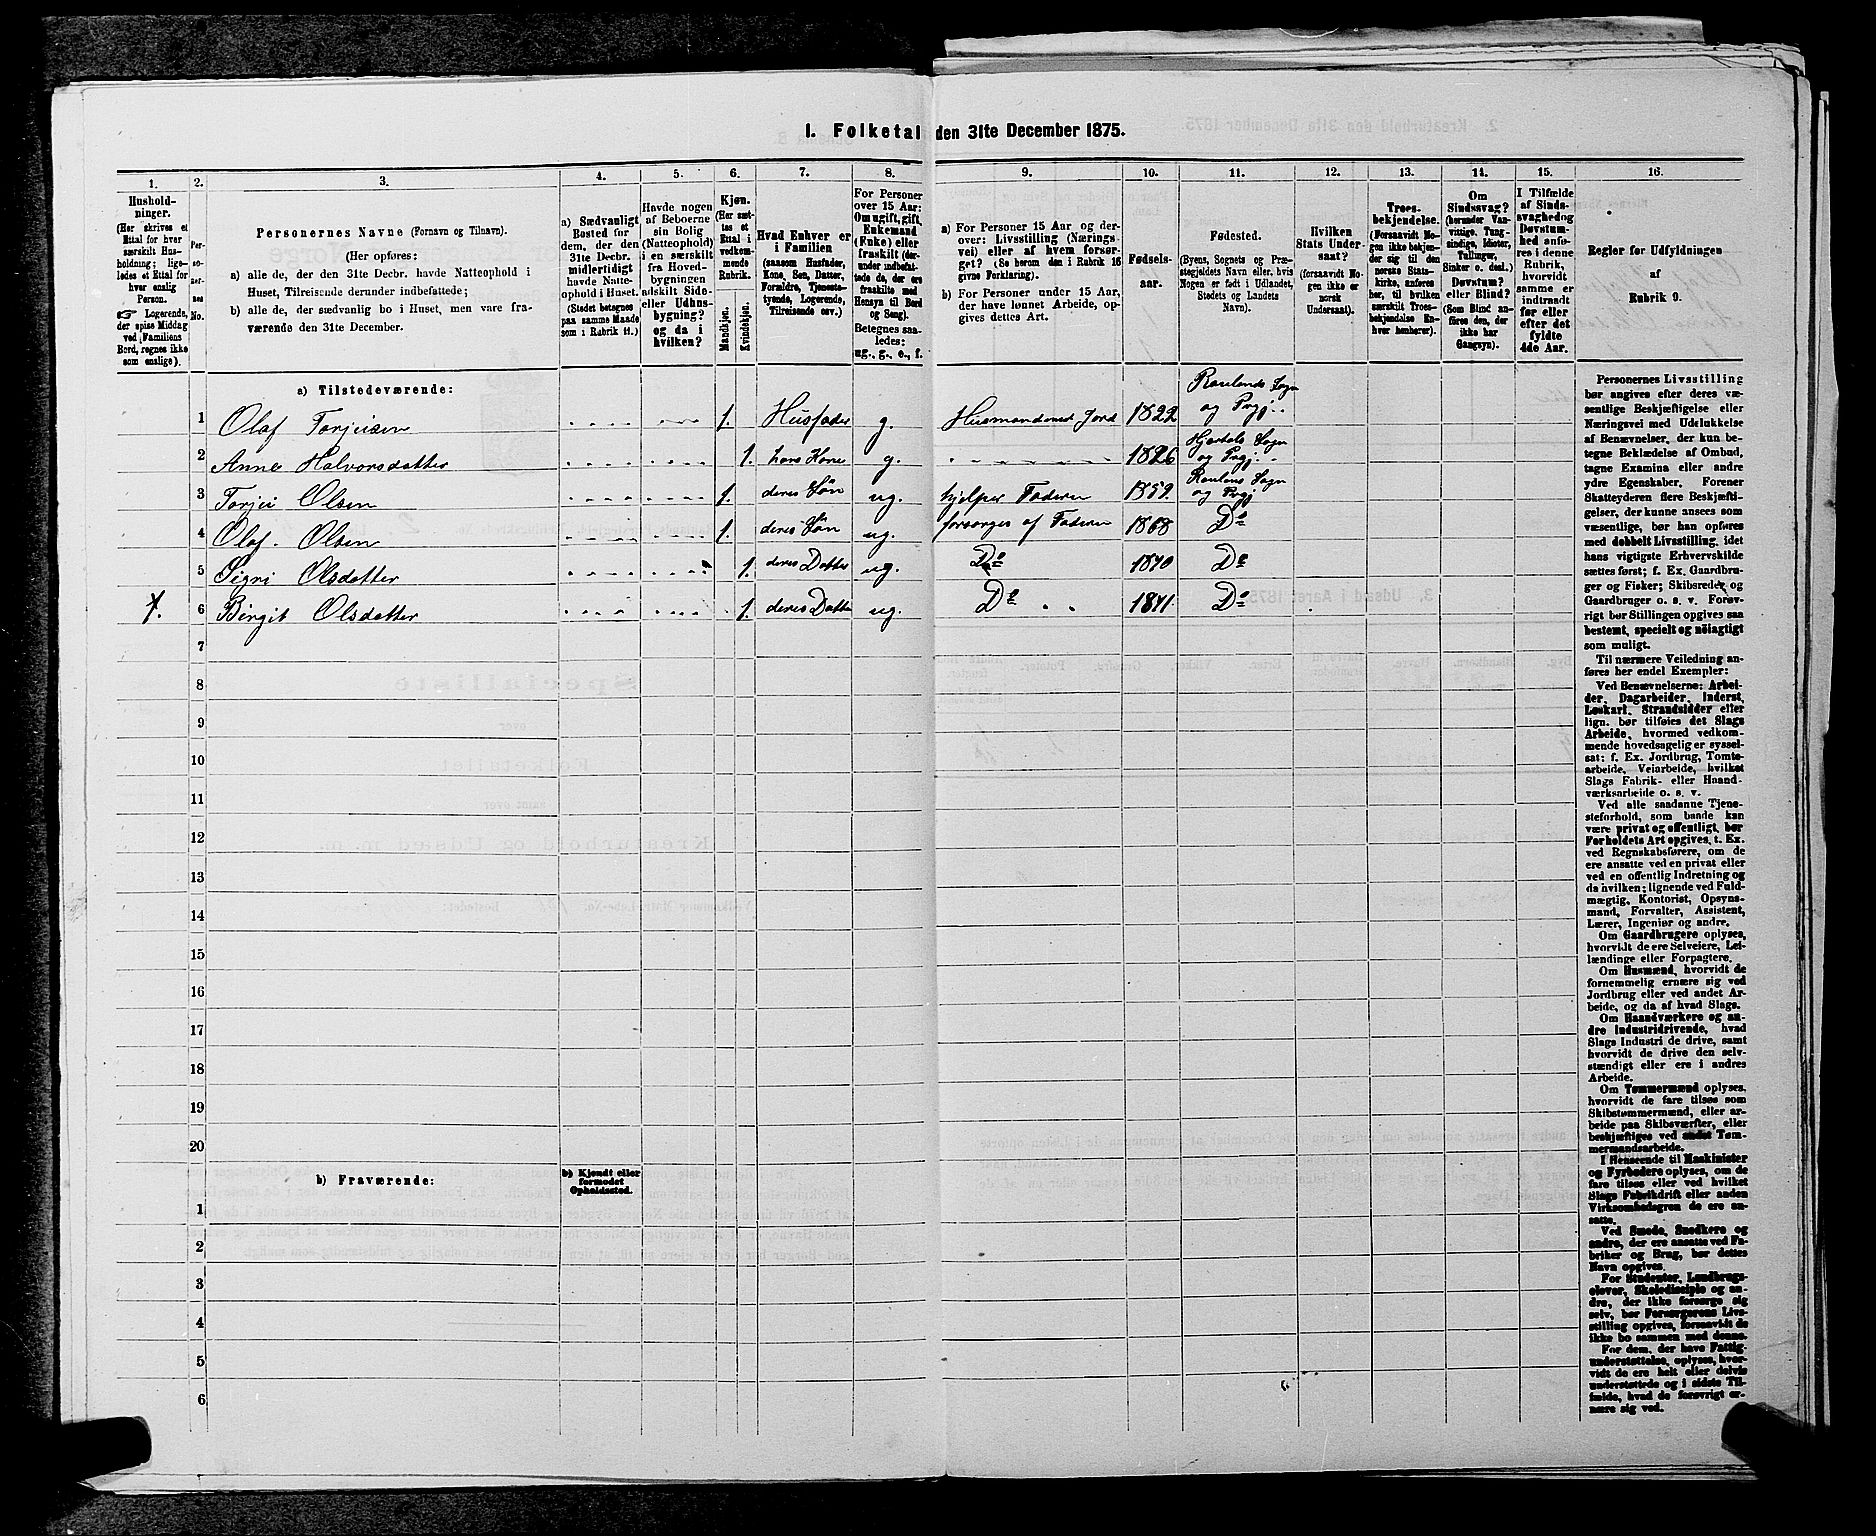 I. Folketal den 31te December 1875.
1.
Hushold-
ninger.
(Her skrives et
Ettal for hver
særskilt Hus-
holdning; lige-
ledes et Ettal for
hver enslig
Person.
☞ Logerende,
der spise Middag
ved Familiens
Bord, regnes ikke
som enslige).
2.
Per-
so-
ner-
nes
No.
3.
Personernes Navne (Fornavn og Tilnavn).
(Her opføres:
a) alle de, der den 31te Decbr. havde Natteophold i
Huset, Tilreisende derunder indbefattede;
b) alle de, der sædvanlig bo i Huset, men vare fra-
værende den 31te December.
4.
a) Sædvanligt
Bosted for
dem, der den
31te Decbr.
midlertidigt
havde Natte-
ophold i Huset.
(Stedet betegnes
paa samme Maade
som i Rubrik 11.)
5.
Havde nogen
af Beboerne
sin Bolig
(Natteophold)
i en særskilt
fra Hoved-
bygningen
adskilt Side-
eller Udhus-
bygning?
og da i
hvilken?
6.
Kjøn.
(Her sæt-
tes et
Ettal i
vedkom-
mende
Rubrik.
Mandkjøn.
Kvindekjøn.
7.
Hvad Enhver er
i Familien
(saasom Husfader,
Kone, Søn, Datter,
Forældre, Tjeneste-
tyende, Logerende,
Tilreisende osv.)
8.
For Personer
over 15 Aar:
Om ugift, gift,
Enkemand
(Enke) eller
fraskilt (der-
under indbefat-
tede de, der ere
fraskilte med
Hensyn til Bord
og Seng).
Betegnes saa-
ledes:
ug., g., e., f.
9.
a) For Personer 15 Aar og der-
over: Livsstilling (Nærings-
vei) eller af hvem forsør-
get? (Se herom den i Rubrik 16
givne Forklaring).
b) For Personer under 15 Aar,
der have lønnet Arbeide, op-
gives dettes Art.
10.
Fødsels-
aar.
11.
Fødested.
(Byens, Sognets og Præ-
stegjeldets Navn eller, hvis
Nogen er født i Udlandet,
Stedets og Landets
Navn).
12.
Hvilken
Stats Under-
saat?
(forsaavidt No-
gen ikke er
norsk
Undersaat).
13.
Troes-
bekjendelse.
(Forsaavidt No-
gen ikke bekjen-
der sig til den
norske Stats-
kirke, anføres
her, til hvilken
særskilt Troes-
bekjendelse En-
hver henhører).
14.
Om
Sindssvag?
(herunder Van-
vittige, Tung-
sindige, Idioter,
Tullinger,
Sinker o. desl.)
Døvstum?
eller Blind?
(Som Blind an-
føres den, der
ikke har
Gangsyn).
15.
I Tilfælde
af Sinds-
svaghed og
Døvstum-
hed anfø-
res i denne
Rubrik,
hvorvidt
samme er
indtraadt
før eller
efter det
fyldte
4de Aar.
16.
Regler for Udfyldningen
af
Rubrik 9.
a) Tilstedeværende:
1 Olaf Torjeisen 1. Husfader g. Husmand med Jord 1822 Raulands Sogn og Prgj..
2 Anne Halvorsdatter 1. hans Kone g. 1826 Hjertdals Sogn og Prgj..
3 Torjei Olsen 1. deres Søn ug. hjelper Faderen 1859. Raulans Sogn og Prgj
4 Olaf Olsen 1. deres Søn ug. forsørges af Faderen 1868 Do
5 Sigri Olsdatter 1. deres Datter ug. Do 1870 Do
1. 6 Birgit Olsdatter 1. deres Datter ug. Do 1871. Do
7
8
9
10
11
12
13
14
15
16
17
18
19
20
b) Fraværende:
b) Kjendt eller
formodet
Opholdssted.
1
2
3
4
5
6
Personernes Livsstilling
bør angives efter deres væ-
sentlige Beskjæftigelse eller
Næringsvei med Udelukkelse
af Benævnelser, der kun be-
tegne Beklædelse af Ombud,
tagne Examina eller andre
ydre Egenskaber. Forener
Skatteyderen flere Beskjæfti-
gelser, der kunne ansees som
væsentlige, bør han opføres
med dobbelt Livsstilling, idet
hans vigtigste Erhvervskilde
sættes først; f. Ex. Gaardbru-
ger og Fisker; Skibsreder og
Gaardbruger o. s. v. Forøv-
rigt bør Stillingen opgives saa
bestemt, specielt og nøiagtigt
som muligt.
Til nærmere Veiledning an-
føres her endel Exempler:
Ved Benævnelserne: Arbei-
der, Dagarbeider, Inderst,
Løskarl, Strandsidder eller
lign. bør tilføies det Slags
Arbeide, hvormed vedkom-
mende hovedsagelig er syssel-
sat; f. Ex. Jordbrug, Tomte-
arbeide, Veiarbeide, hvilket
Slags Fabrik- eller Haand-
værksarbeide o. s. v.
Ved alle saadanne Tjene-
steforhold, som baade kan
være privat og offentligt, bør
Forholdets Art opgives, t. Ex.
ved Regnskabsførere, om de
ere ansatte ved en privat eller
ved en offentlig Indretning og
da hvilken; lignende ved Fuld-
mægtig, Kontorist, Opsyns-
mand, Forvalter, Assistent,
Lærer, Ingeniør og andre.
Om Gaardbrugere oplyses,
hvorvidt de ere Selveiere, Lei-
lændinge eller Forpagtere.
Om Husmænd, hvorvidt de
fornemmelig ernære sig ved
Jordbrug eller ved andet Ar-
beide, og da af hvad Slags.
Om Haandværkere og an-
dre Industridrivende, hvad
Slags Industri de drive, samt
hvorvidt de drive den selv-
stændigt eller ere i andres
Arbeide.
Om Tømmermænd oplyses,
hvorvidt de fare tilsøs som
Skibstømmermænd, eller ar-
beide paa Skibsværfter, eller
beskjæftiges ved andet Tøm-
mermandsarbeide.
I Henseende til Maskinister
og Fyrbødere oplyses, om de
fare tilsøs eller ved hvilket
Slags Fabrikdrift eller anden
Virksomhedsgren de ere an-
satte.
Ved Smede, Snedkere og
andre, der ere ansatte ved Fa-
briker og Brug, bør dettes
Navn opgives.
For Studenter, Landbrugs-
elever, Skoledisciple og an-
dre, der ikke forsørge sig
selv, bør Forsørgerens Livs-
stilling opgives, forsaavidt de
ikke bo sammen med denne.
For dem, der have Fattig-
understøttelse, oplyses, hvor-
vidt de ere helt eller delvis
understøttede og i sidste Til-
fælde, hvad de forøvrigt er-
nære sig ved.